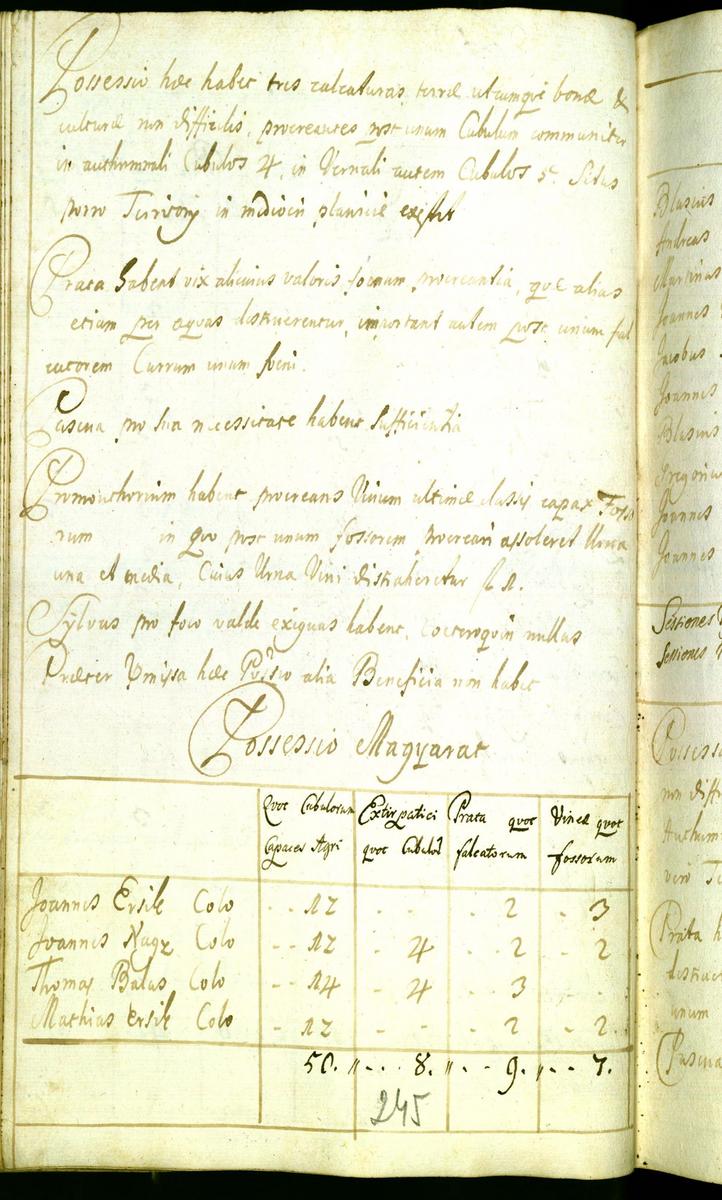 Possessio hæc habet tres calcaturas terræ utcumque bonæ &
culturæ non difficilis, procreantes post unum Cubulum communiter
in authumnali Cubulos 4, in Vernali autem Cubulos 5. Situs
porro Territorij in mediocri planicie existit
Prata habent vix alicuius valoris foenum procreantia, quæ alias
etiam per aquas destruerentur, important autem post unum fal
catorem Currum unum foeni.
Pascua pro sua necessitate habent sufficientia
Promonthorium habent procreans Vinum ultimæ classis capax Fosso
rum in quo post unum fossorem procreari assoleret Urna
una et media, Cuius Urna Vini distraheretur f 1.
Sylvas pro foco valde exiguas habent, coeteroquin nullas
Præter præmissa hæc Possio alia Beneficia non habet
Possessio Magyarat
Quot Cubulorum Capaces Agri
Extirpatici quot Cubulor
Prata quot falcatorum
Vineæ quot fossorum
Joannes Ersik Colo - - 12 - - - 2 - 3
Joannes Nagy Colo - - 12 - 4 - 2 - 2
Thomas Balas Colo - - 14 - 4 - 3
Mathias Ersik Colo - 12 - - - 2 - 2.
50. „ - - 8. „ - - 9. „ - - 7.
245
Blasius
Andreas
Martinus
Joannes
Jacobus
Joannes
Blasius
Gregorius
Joannes
Joannes
Sessiones
Sessiones
Possessio
non diff
Authum
vero
Prata h
destrue
unum
Pascua